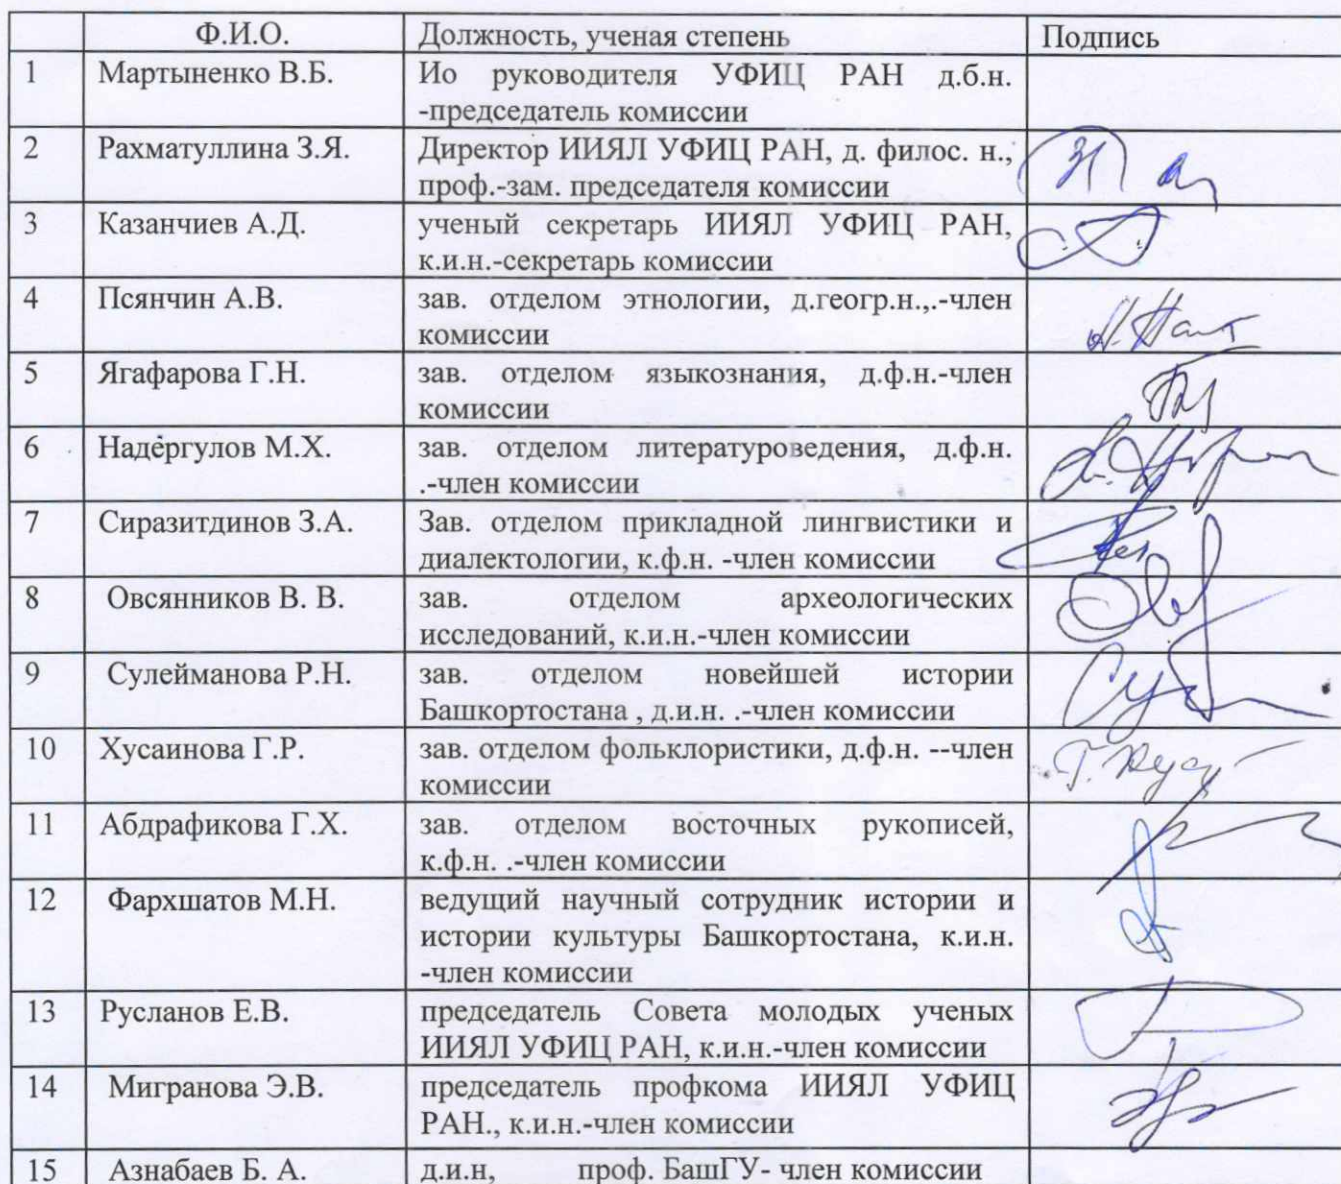 Ф.И.О. Должность, ученая степень Подпись
1 Мартыненко В.Б. Ио руководителя УФИЦ РАН д.б.н.
-председатель комиссии
2 Рахматуллина З.Я. Директор ИИЯЛ УФИЦ РАН, д. филос. н.,
проф.-зам. председателя комиссии
3 Казанчиев А.Д. ученый секретарь ИИЯЛ УФИЦ РАН,
к.и.н.-секретарь комиссии
4 Псянчин А.В. зав. отделом этнологии, д.геогр.н.,.-член
комиссии
5 Ягафарова Г.Н. зав. отделом языкознания, д.ф.н.-член
комиссии
6 Надергулов М.Х. зав. отделом литературоведения, д.ф.н.
.-член комиссии
7 Сиразитдинов З.А. Зав. отделом прикладной лингвистики и
диалектологии, к.ф.н. -член комиссии
8 Овсянников В. В. зав. отделом археологических
исследований, к.и.н.-член комиссии
9 Сулейманова Р.Н. зав. отделом новейшей истории
Башкортостана , д.и.н. .-член комиссии
10 Хусаинова Г.Р. зав. отделом фольклористики, д.ф.н. --член
комиссии
11 Абдрафикова Г.Х. зав. отделом восточных рукописей,
к.ф.н. .-член комиссии
12 Фархшатов М.Н. ведущий научный сотрудник истории и
истории культуры Башкортостана, к.и.н.
-член комиссии
13 Русланов Е.В. председатель Совета молодых ученых
ИИЯЛ УФИЦ РАН, к.и.н.-член комиссии
14 Мигранова Э.В. председатель профкома ИИЯЛ УФИЦ
РАН., к.и.н.-член комиссии
15 Азнабаев Б. А. д.и.н, проф. БашГУ- член комиссии